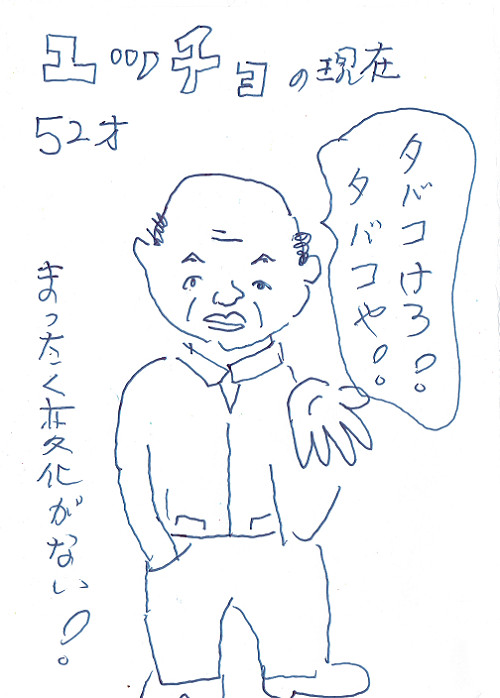 ユッチョの現在
52才
タバコけろ!
タバコや!
まったく変化がない!